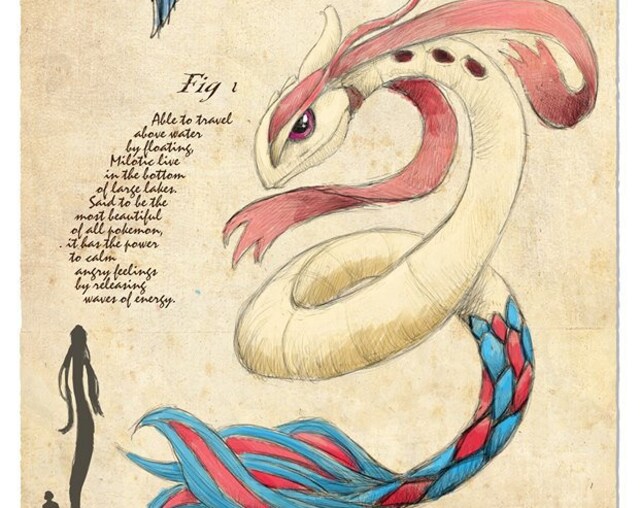 Fig 1
Able to travel
above water
by floating,
Milotic live
in the bottom
of large lakes.
Said to be the
most beautiful
of all pokemon,
it has the power
to calm
angry feelings
by releasing
waves of energy.